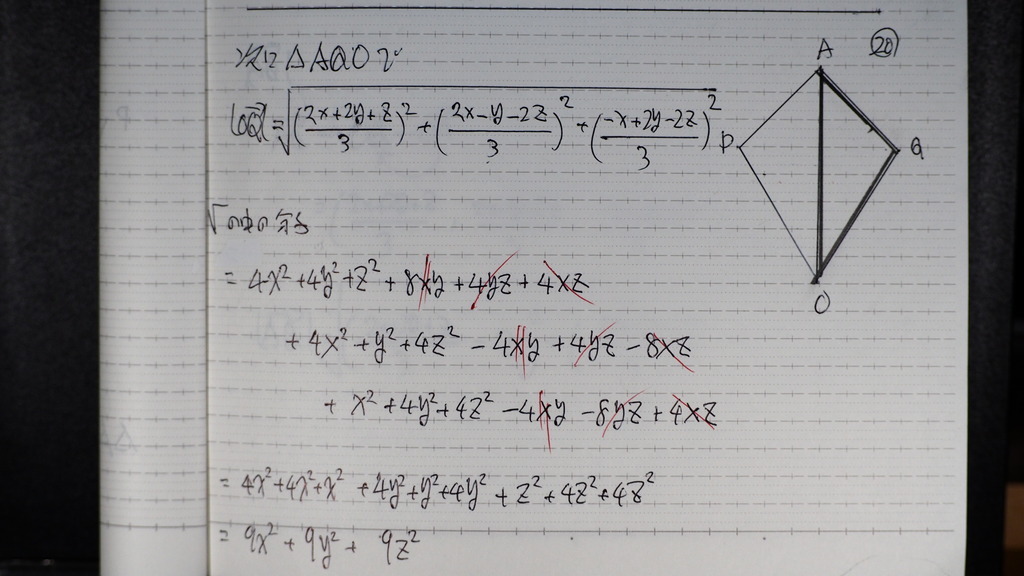 ⑳
次に△AQOで
|OQ|=√((2x+2y+z)/3)²+((2x-y-2z)/3)²+((-x+2y-2z)/3)²
A
P
Q
O
√の中の分子
= 4x²+4y²+z²+8xy+4yz+4xz
+ 4x²+y²+4z²-4xy+4yz-8xz
+ x²+4y²+4z²-4xy-8yz+4xz
= 4x²+4x²+x²+4y²+y²+4y²+z²+4z²+4z²
= 9x²+9y²+9z²